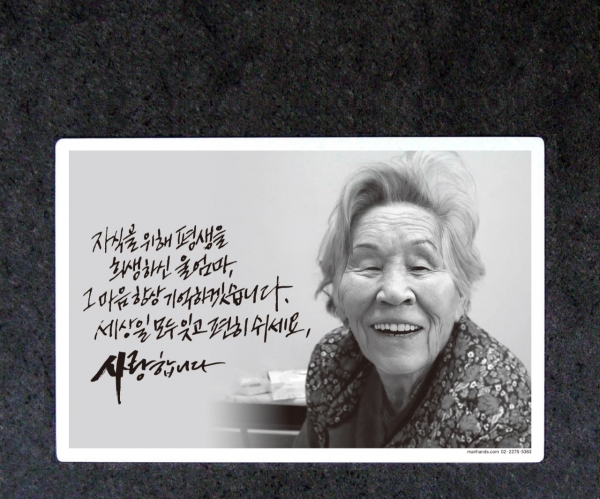 자식을 위해 평생을
희생하신 울엄마,
그 마음 항상 기억하겠습니다.
세상일 모두 잊고 편히 쉬세요,
사랑합니다
manhands.com 02-2275-5363